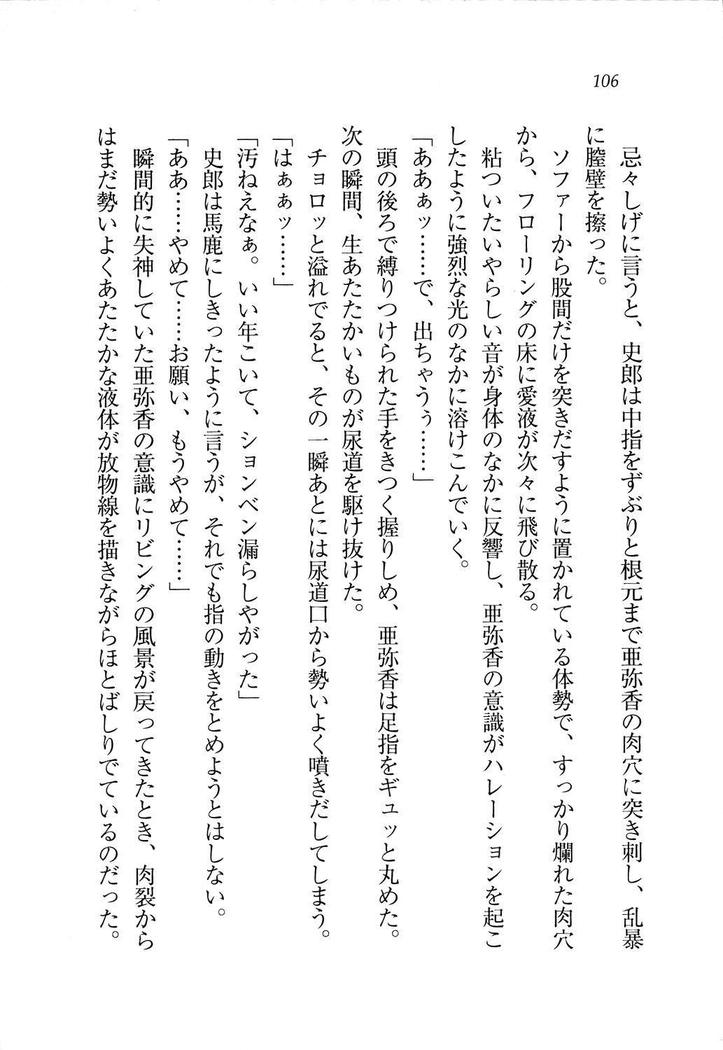 106
忌々しげに言うと、史郎は中指をずぶりと根元まで亜弥香の肉穴に突き刺し、乱暴
に膣壁を擦った。
ソファーから股間だけを突きだすように置かれている体勢で、すっかり爛れた肉穴
から、フローリングの床に愛液が次々に飛び散る。
粘ついたいやらしい音が身体のなかに反響し、亜弥香の意識がハレーションを起こ
したように強烈な光のなかに溶けこんでいく。
「ああぁッ……で、出ちゃうぅ……」
頭の後ろで縛りつけられた手をきつく握りしめ、亜弥香は足指をギュッと丸めた。
次の瞬間、生あたたかいものが尿道を駆け抜けた。
チョロッと溢れでると、その一瞬あとには尿道口から勢いよく噴きだしてしまう。
「はぁぁッ……」
「汚ねえなぁ。いい年こいて、ションベン漏らしやがった」
史郎は馬鹿にしきったように言うが、それでも指の動きをとめようとはしない。
「ああ……やめて……お願い、もうやめて……」
瞬間的に失神していた亜弥香の意識にリビングの風景が戻ってきたとき、肉裂から
はまだ勢いよくあたたかな液体が放物線を描きながらほとばしりでているのだった。